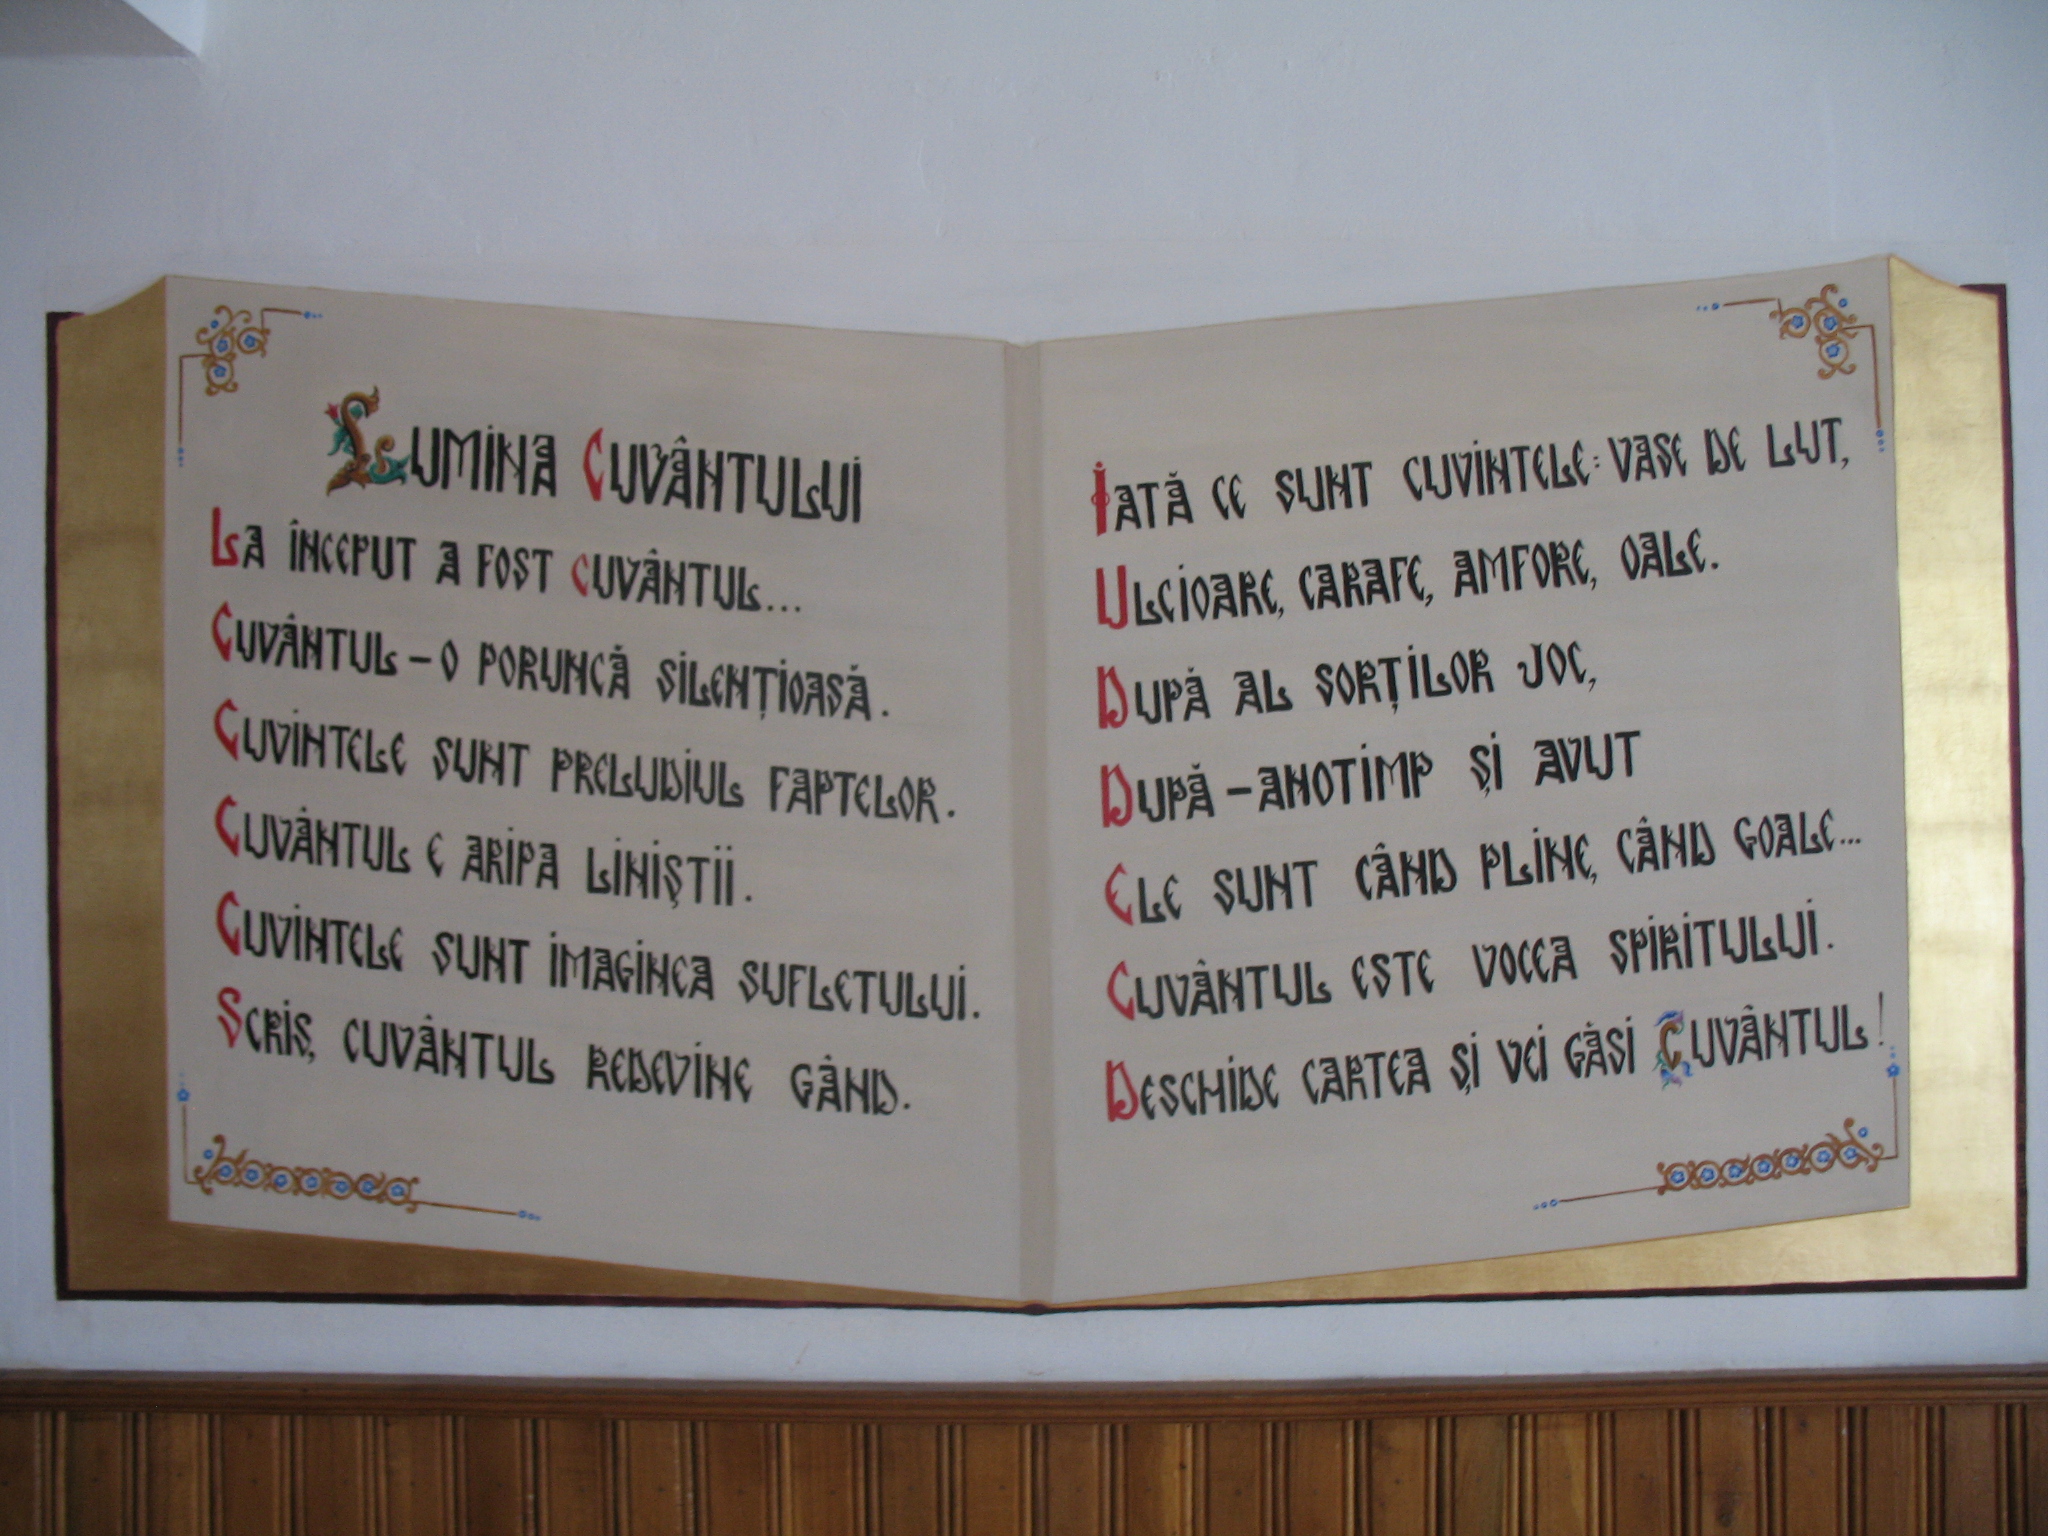 Lumina Cuvântului
La început a fost Cuvântul...
Cuvântul – o poruncă silențioasă.
Cuvintele sunt preludiul faptelor.
Cuvântul e aripa liniștii.
Cuvintele sunt imaginea sufletului.
Scris, cuvântul redevine gând.
Iată ce sunt cuvintele: vase de lut,
Ulcioare, carafe, amfore, oale.
După al sorților joc,
După – anotimp și avut
Ele sunt când pline, când goale...
Cuvântul este vocea spiritului.
Deschide cartea și vei găsi Cuvântul!